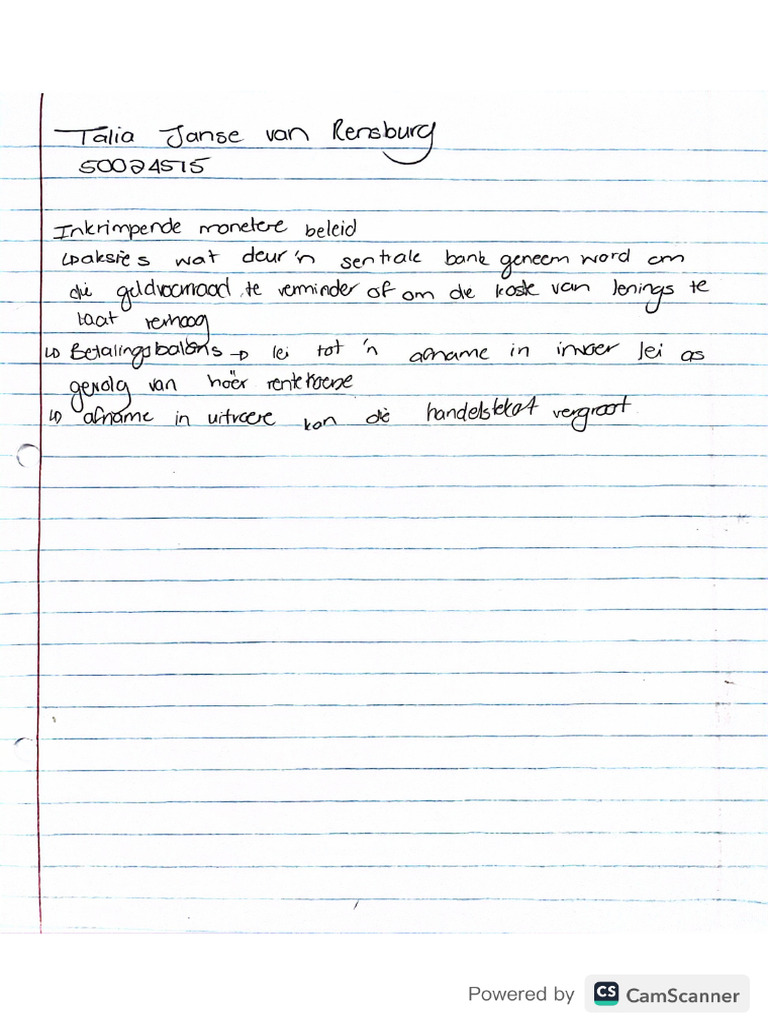 Talia Janse van Rensburg
50024515
Inkrimpende monetere beleid
↳ aksies wat deur 'n sentrale bank geneem word om
die geldvoorraad te verminder of om die koste van lenings te
laat verhoog
↳ Betalingsbalans → lei tot 'n afname in invoer lei as
gevolg van hoër rentekoerse
↳ afname in uitvoere kan die handelstekort vergroot
Powered by CS CamScanner